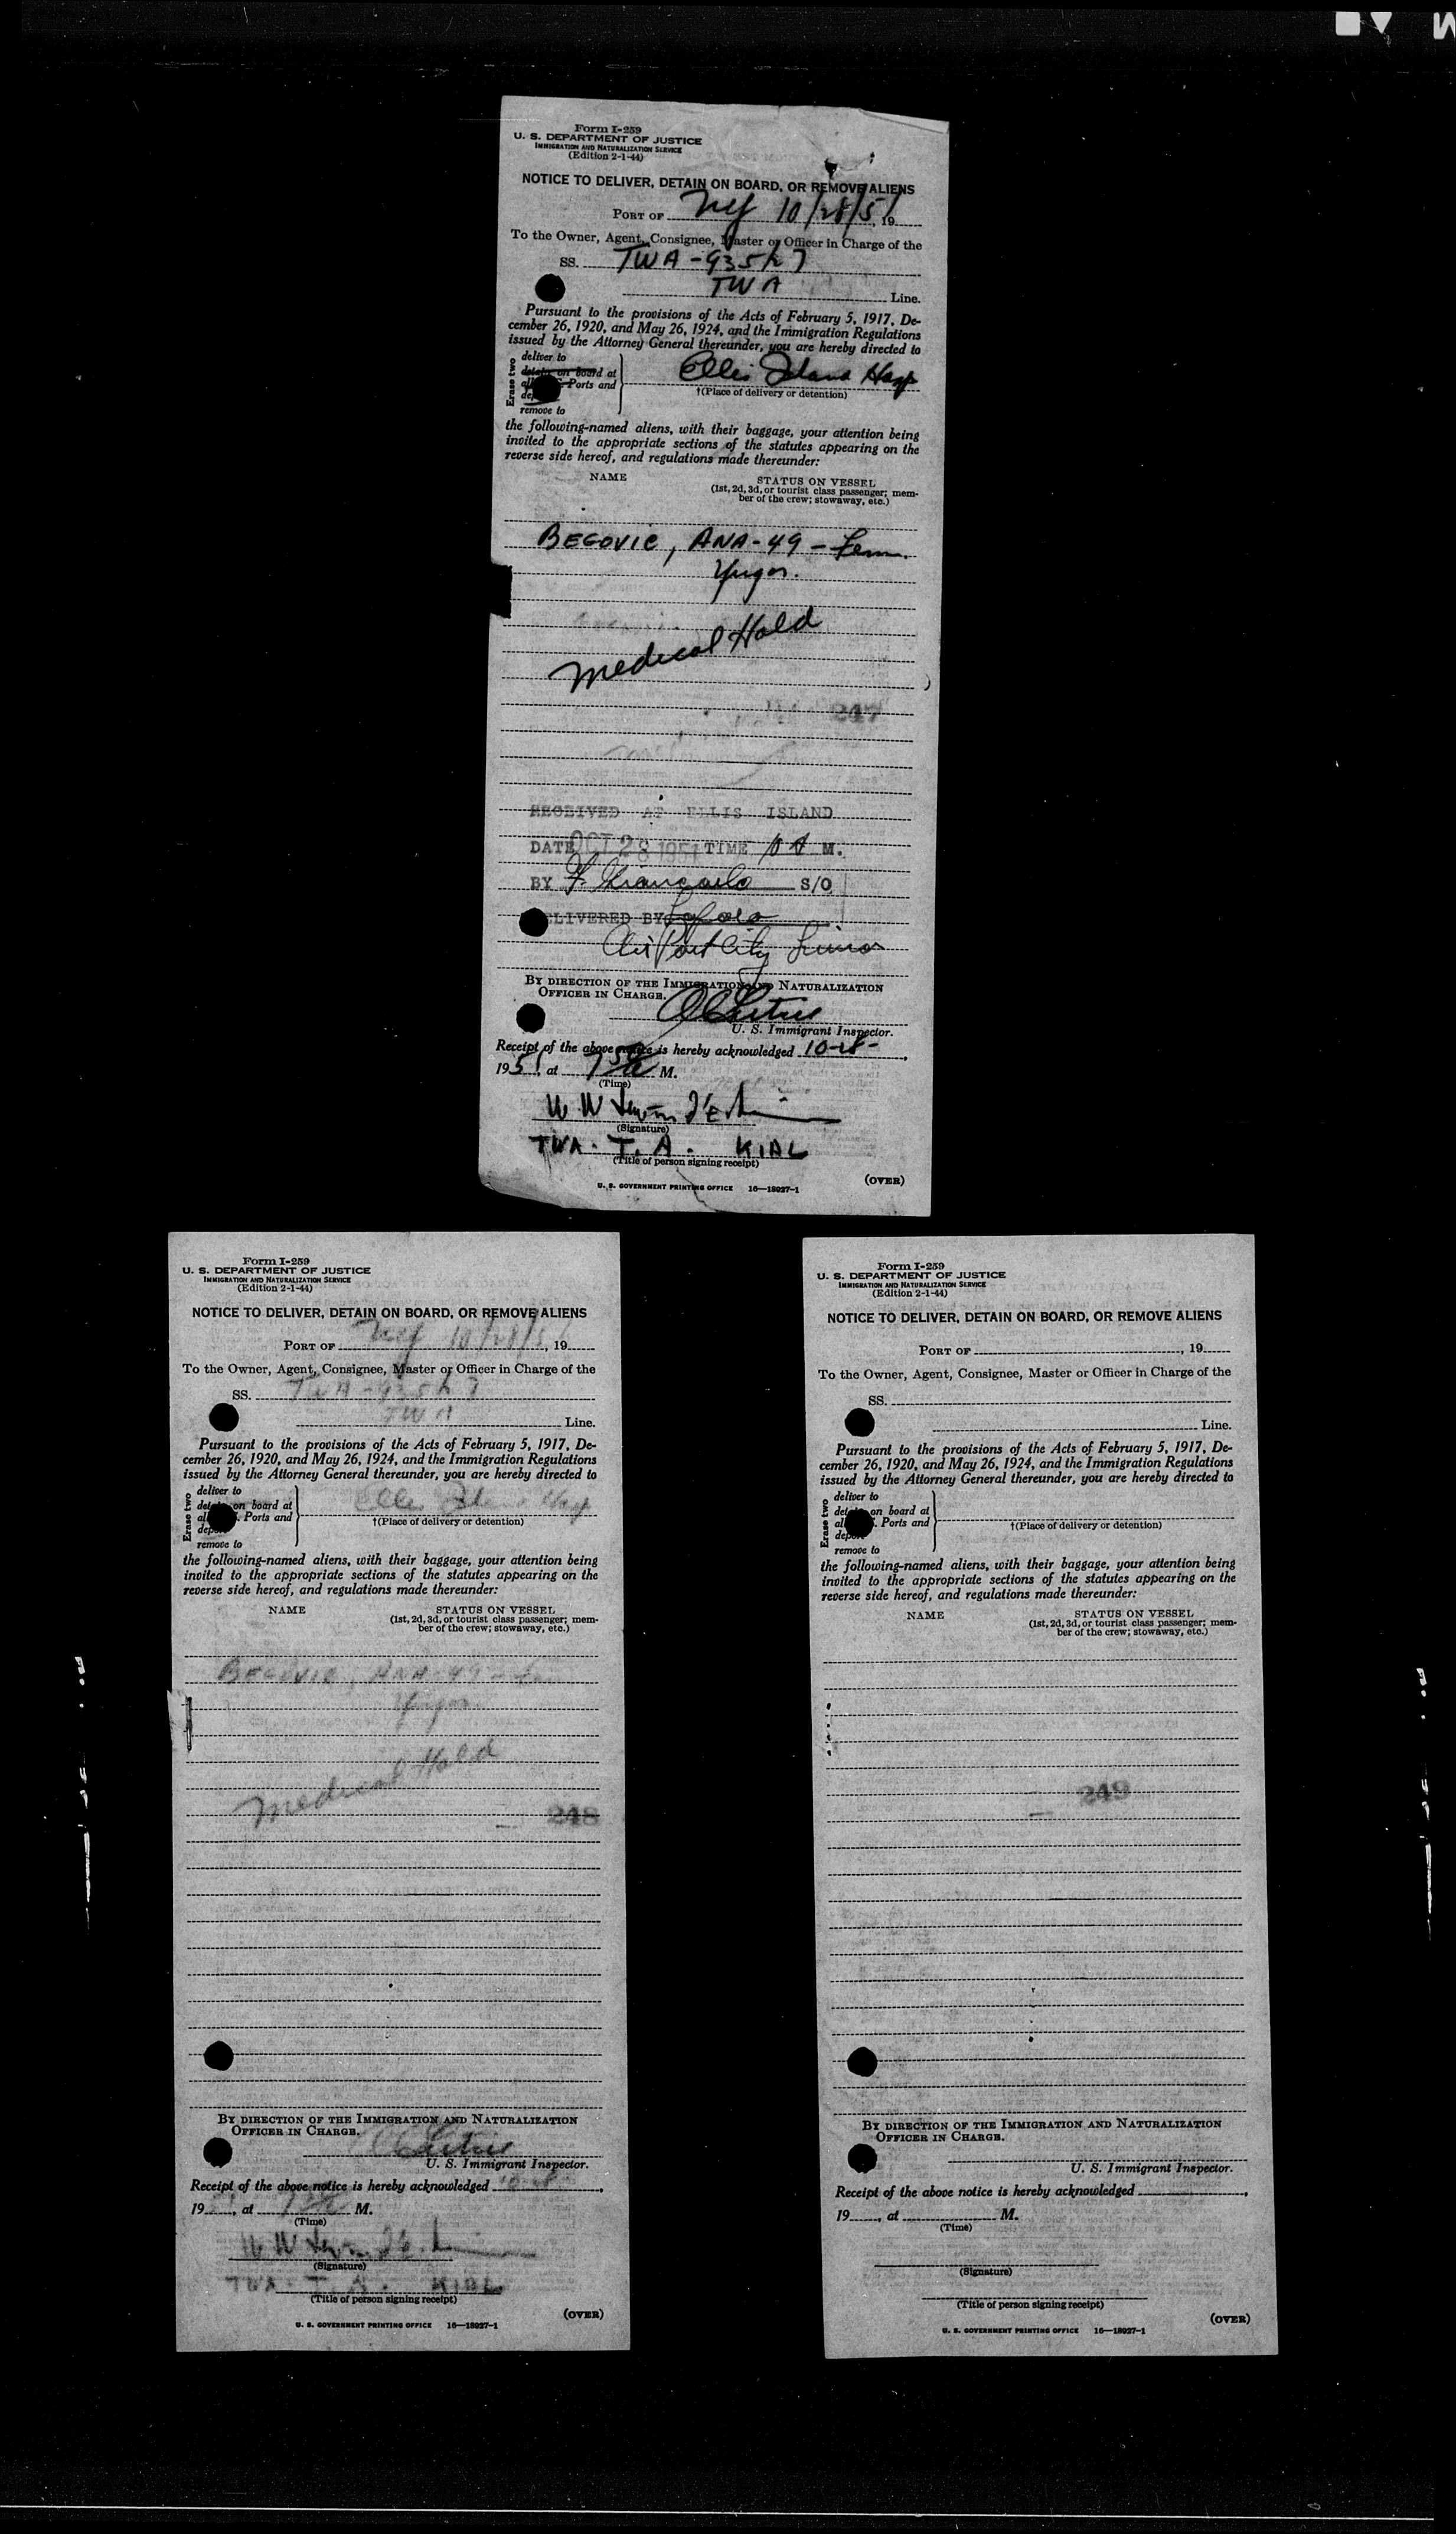 Form I-259
U. S. DEPARTMENT OF JUSTICE
IMMIGRATION AND NATURALIZATION SERVICE
(Edition 2-1-44)
NOTICE TO DELIVER, DETAIN ON BOARD, OR REMOVE ALIENS
PORT OF NY 10/28/51, 19
To the Owner, Agent, Consignee, Master or Officer in Charge of the
SS. TWA-935/27
TWA Line.
Pursuant to the provisions of the Acts of February 5, 1917, De-
cember 26, 1920, and May 26, 1924, and the Immigration Regulations
issued by the Attorney General thereunder, you are hereby directed to
Erase two
deliver to
detain on board at
Ports and
remove to
Ellis Island Hosp
†(Place of delivery or detention)
the following-named aliens, with their baggage, your attention being
invited to the appropriate sections of the statutes appearing on the
reverse side hereof, and regulations made thereunder:
NAME STATUS ON VESSEL
(1st, 2d, 3d, or tourist class passenger; mem-
ber of the crew; stowaway, etc.)
BEGOVIC, ANA-49 - Fem.
Yugos.
Medical Hold
247
RECEIVED AT ELLIS ISLAND
DATE OCT 28 1951 TIME M.
BY F. Giancarlo S/O
DELIVERED BY
Air Port City Limo
BY DIRECTION OF THE IMMIGRATION AND NATURALIZATION
OFFICER IN CHARGE.
U. S. Immigrant Inspector.
Receipt of the above notice is hereby acknowledged 10-28-,
1951, at M.
(Time)
W W
(Signature)
TWA. T. A. KIAL
(Title of person signing receipt)
(OVER)
U. S. GOVERNMENT PRINTING OFFICE 16—18927-1
Form I-259
U. S. DEPARTMENT OF JUSTICE
IMMIGRATION AND NATURALIZATION SERVICE
(Edition 2-1-44)
NOTICE TO DELIVER, DETAIN ON BOARD, OR REMOVE ALIENS
PORT OF NY 10/28/51, 19
To the Owner, Agent, Consignee, Master or Officer in Charge of the
SS. TWA-935/27
TWA Line.
Pursuant to the provisions of the Acts of February 5, 1917, De-
cember 26, 1920, and May 26, 1924, and the Immigration Regulations
issued by the Attorney General thereunder, you are hereby directed to
Erase two
deliver to
on board at
Ports and
remove to
Ellis Island Hosp
†(Place of delivery or detention)
the following-named aliens, with their baggage, your attention being
invited to the appropriate sections of the statutes appearing on the
reverse side hereof, and regulations made thereunder:
NAME STATUS ON VESSEL
(1st, 2d, 3d, or tourist class passenger; mem-
ber of the crew; stowaway, etc.)
BEGOVIC, ANA-49 - Fem
Yugos.
Medical Hold
248
BY DIRECTION OF THE IMMIGRATION AND NATURALIZATION
OFFICER IN CHARGE.
U. S. Immigrant Inspector.
Receipt of the above notice is hereby acknowledged 10-28,
19, at M.
(Time)
W W
(Signature)
TWA T. A. KIAL
(Title of person signing receipt)
(OVER)
U. S. GOVERNMENT PRINTING OFFICE 16—18927-1
Form I-259
U. S. DEPARTMENT OF JUSTICE
IMMIGRATION AND NATURALIZATION SERVICE
(Edition 2-1-44)
NOTICE TO DELIVER, DETAIN ON BOARD, OR REMOVE ALIENS
PORT OF , 19
To the Owner, Agent, Consignee, Master or Officer in Charge of the
SS.
Line.
Pursuant to the provisions of the Acts of February 5, 1917, De-
cember 26, 1920, and May 26, 1924, and the Immigration Regulations
issued by the Attorney General thereunder, you are hereby directed to
Erase two
deliver to
on board at
Ports and
remove to
†(Place of delivery or detention)
the following-named aliens, with their baggage, your attention being
invited to the appropriate sections of the statutes appearing on the
reverse side hereof, and regulations made thereunder:
NAME STATUS ON VESSEL
(1st, 2d, 3d, or tourist class passenger; mem-
ber of the crew; stowaway, etc.)
249
BY DIRECTION OF THE IMMIGRATION AND NATURALIZATION
OFFICER IN CHARGE.
U. S. Immigrant Inspector.
Receipt of the above notice is hereby acknowledged ,
19, at M.
(Time)
(Signature)
(Title of person signing receipt)
(OVER)
U. S. GOVERNMENT PRINTING OFFICE 16—18927-1